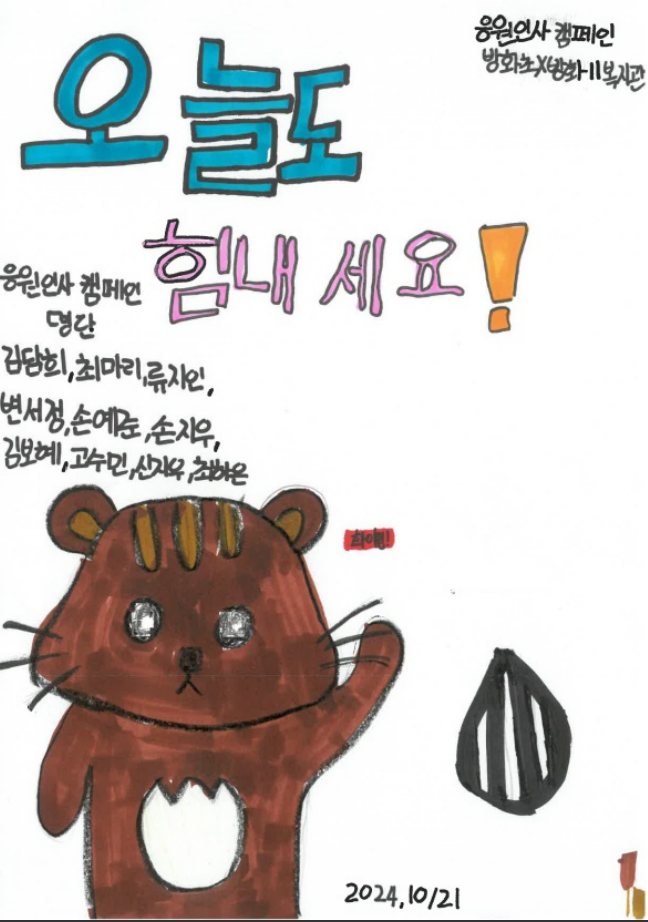 응원인사 캠페인
방화초X방화11복지관
오늘도
힘내세요!
응원인사 캠페인
명단
김담희, 최마리, 류지인,
변서정, 손예준, 손지우,
김보혜, 고수민, 신지우, 최하은
화이팅!
2024,10/21